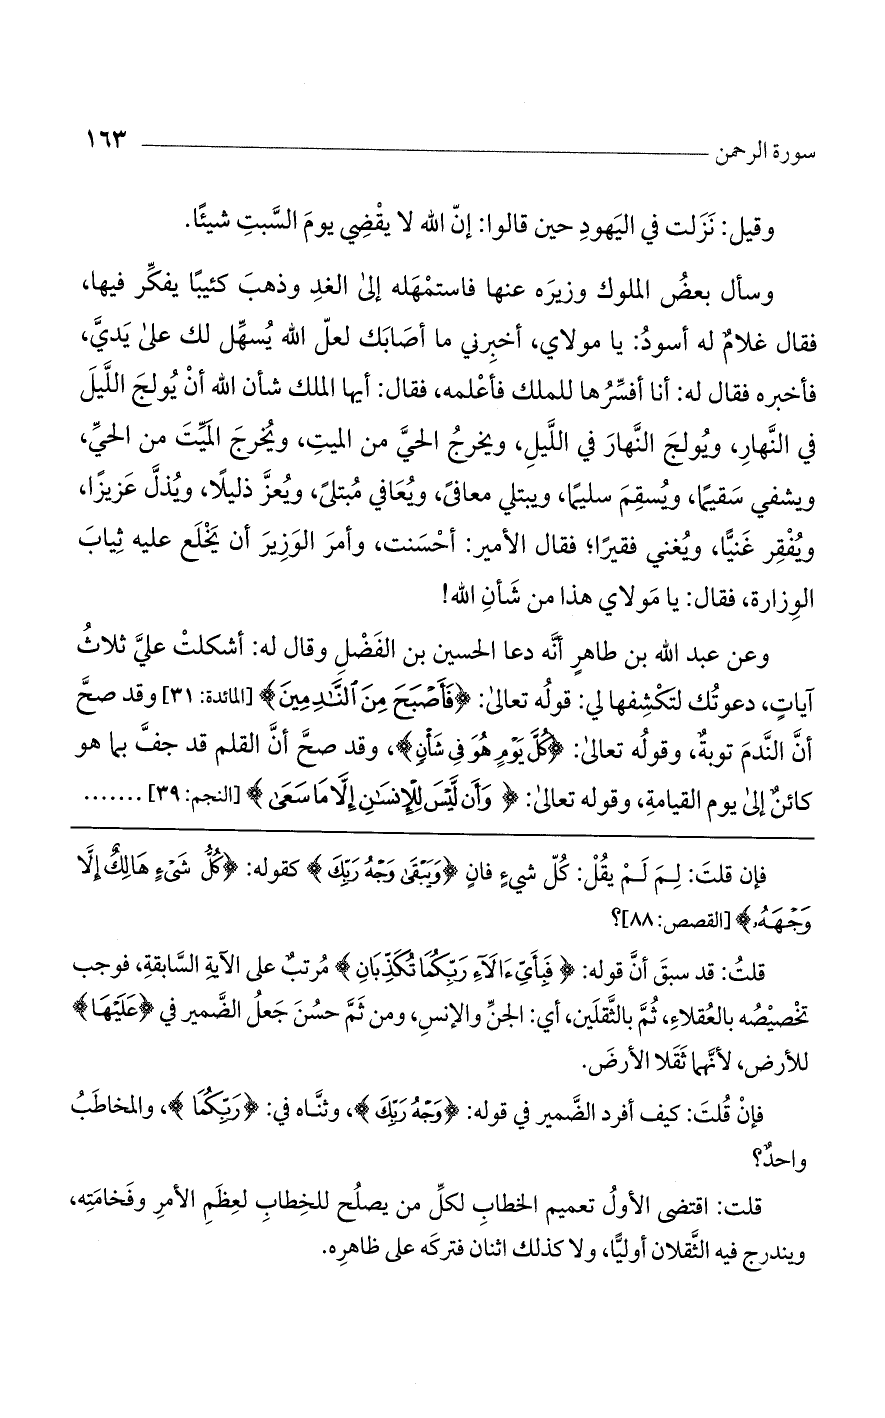 سورة الرحمن ١٦٣
وقيل: نَزَلت في اليَهودِ حين قالوا: إنّ الله لا يقْضِي يومَ السَّبتِ شيئًا.
وسأل بعضُ الملوك وزيرَه عنها فاستمْهَله إلىٰ الغدِ وذهبَ كئيبًا يفكِّر فيها،
فقال غلامٌ له أسودُ: يا مولاي، أخبِرني ما أصَابَك لعلّ الله يُسهِّل لك علىٰ يَديَّ،
فأخبره فقال له: أنا أفسِّرُها للملك فأعْلمه، فقال: أيها الملك شأن الله أنْ يُولجَ اللَّيلَ
في النَّهارِ، ويُولجَ النَّهارَ في اللَّيلِ، ويخرجُ الحيَّ من الميتِ، ويُخرجَ المَيِّتَ من الحيِّ،
ويشفي سَقيمًا، ويُسقِمَ سليمًا، ويبتلي معافىً، ويُعَافي مُبتلىً، ويُعزَّ ذليلًا، ويُذلَّ عَزيزًا،
ويُفْقِر غَنيًّا، ويُغني فقيرًا؛ فقال الأمير: أحْسَنت، وأمرَ الوَزِيرَ أن يَخْلَع عليه ثِيابَ
الوِزارة، فقال: يا مَولاي هذا من شَأنِ الله!
وعن عبد الله بن طاهرٍ أنَّه دعا الحسين بن الفَضْلِ وقال له: أشكلتْ عليَّ ثلاثُ
آياتٍ، دعوتُك لتَكْشِفها لي: قولُه تعالىٰ: ﴿فَأَصْبَحَ مِنَ ٱلنَّـٰدِمِينَ﴾ [المائدة: ٣١] وقد صحَّ
أنَّ النَّدمَ توبةٌ، وقولُه تعالىٰ: ﴿كُلَّ يَوْمٍ هُوَ فِى شَأْنٍ﴾، وقد صحَّ أنَّ القلم قد جفَّ بما هو
كائنٌ إلىٰ يوم القيامةِ، وقوله تعالىٰ: ﴿وَأَن لَّيْسَ لِلْإِنسَـٰنِ إِلَّا مَا سَعَىٰ﴾ [النجم: ٣٩] .......
فإن قلتَ: لِـمَ لَـمْ يقُلْ: كُلّ شيءٍ فانٍ ﴿وَيَبْقَىٰ وَجْهُ رَبِّكَ﴾ كقوله: ﴿كُلُّ شَىْءٍ هَالِكٌ إِلَّا
وَجْهَهُۥ﴾ [القصص: ٨٨]؟
قلتُ: قد سبقَ أنَّ قوله: ﴿فَبِأَىِّ ءَالَآءِ رَبِّكُمَا تُكَذِّبَانِ﴾ مُرتبٌ على الآيةِ السَّابقةِ، فوجب
تخْصيْصُه بالعُقلاءِ، ثُمَّ بالثَّقلَين، أي: الجنِّ والإنسِ، ومن ثَمَّ حسُنَ جَعلُ الضَّمير في ﴿عَلَيْهَا﴾
للأرض، لأنَّهما ثَقَلا الأرضَ.
فإنْ قُلتَ: كيف أفرد الضَّمير في قوله: ﴿وَجْهُ رَبِّكَ﴾، وثنَّاه في: ﴿رَبِّكُمَا﴾، والمخاطَبُ
واحدٌ؟
قلت: اقتضى الأولُ تعميم الخطابِ لكلِّ من يصلُح للخِطابِ لعِظَمِ الأمرِ وفَخامَتِه،
ويندرج فيه الثَّقلان أوليًّا، ولا كذلك اثنان فتركَه على ظاهرِه.